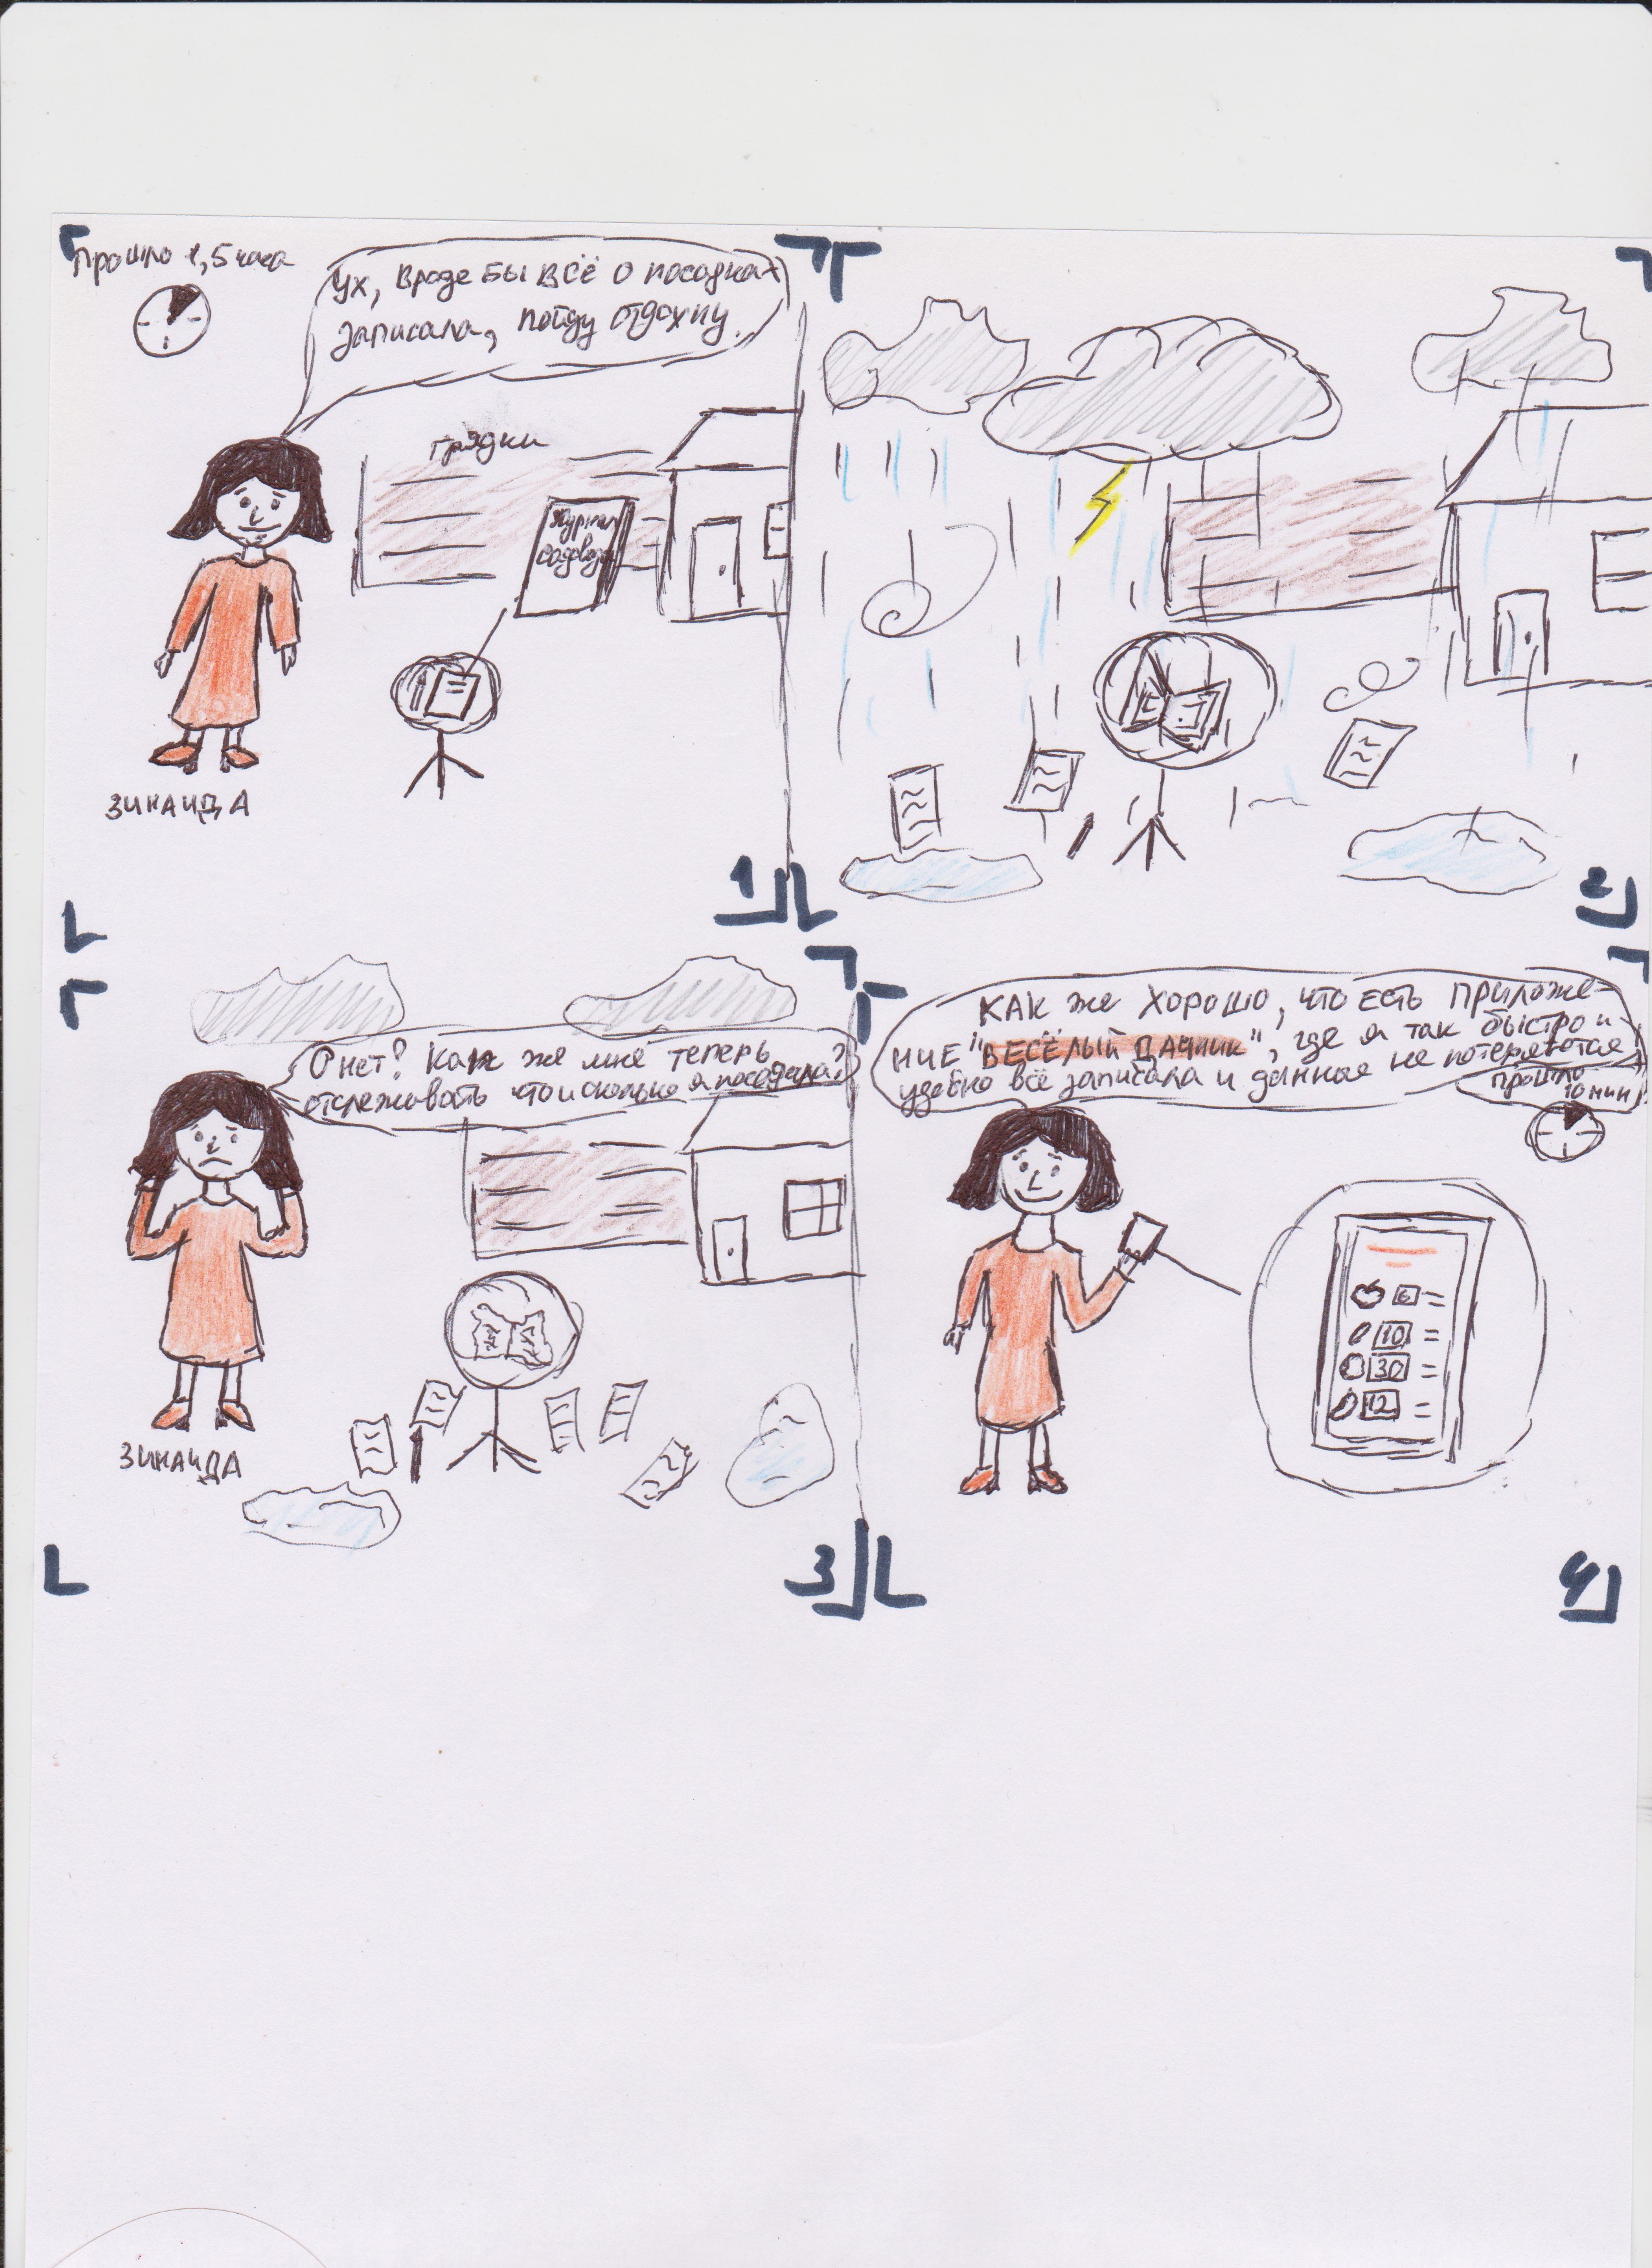 Прошло 1,5 часа
Ух, вроде бы всё о посадках
записала, пойду отдохну.
грядки
Журнал
садовода
ЗИНАИДА
1
2
О нет? Как же мне теперь
отслеживать что и сколько я посадила?
ЗИНАИДА
3
КАК же ХОРОШО, что ЕСТЬ ПРИЛОЖЕ-
НИЕ "ВЕСЁЛЫЙ ДАЧНИК", где я так быстро и
удобно всё записала и данные не потеряются!
прошло
10 мин
6
10
30
12
4